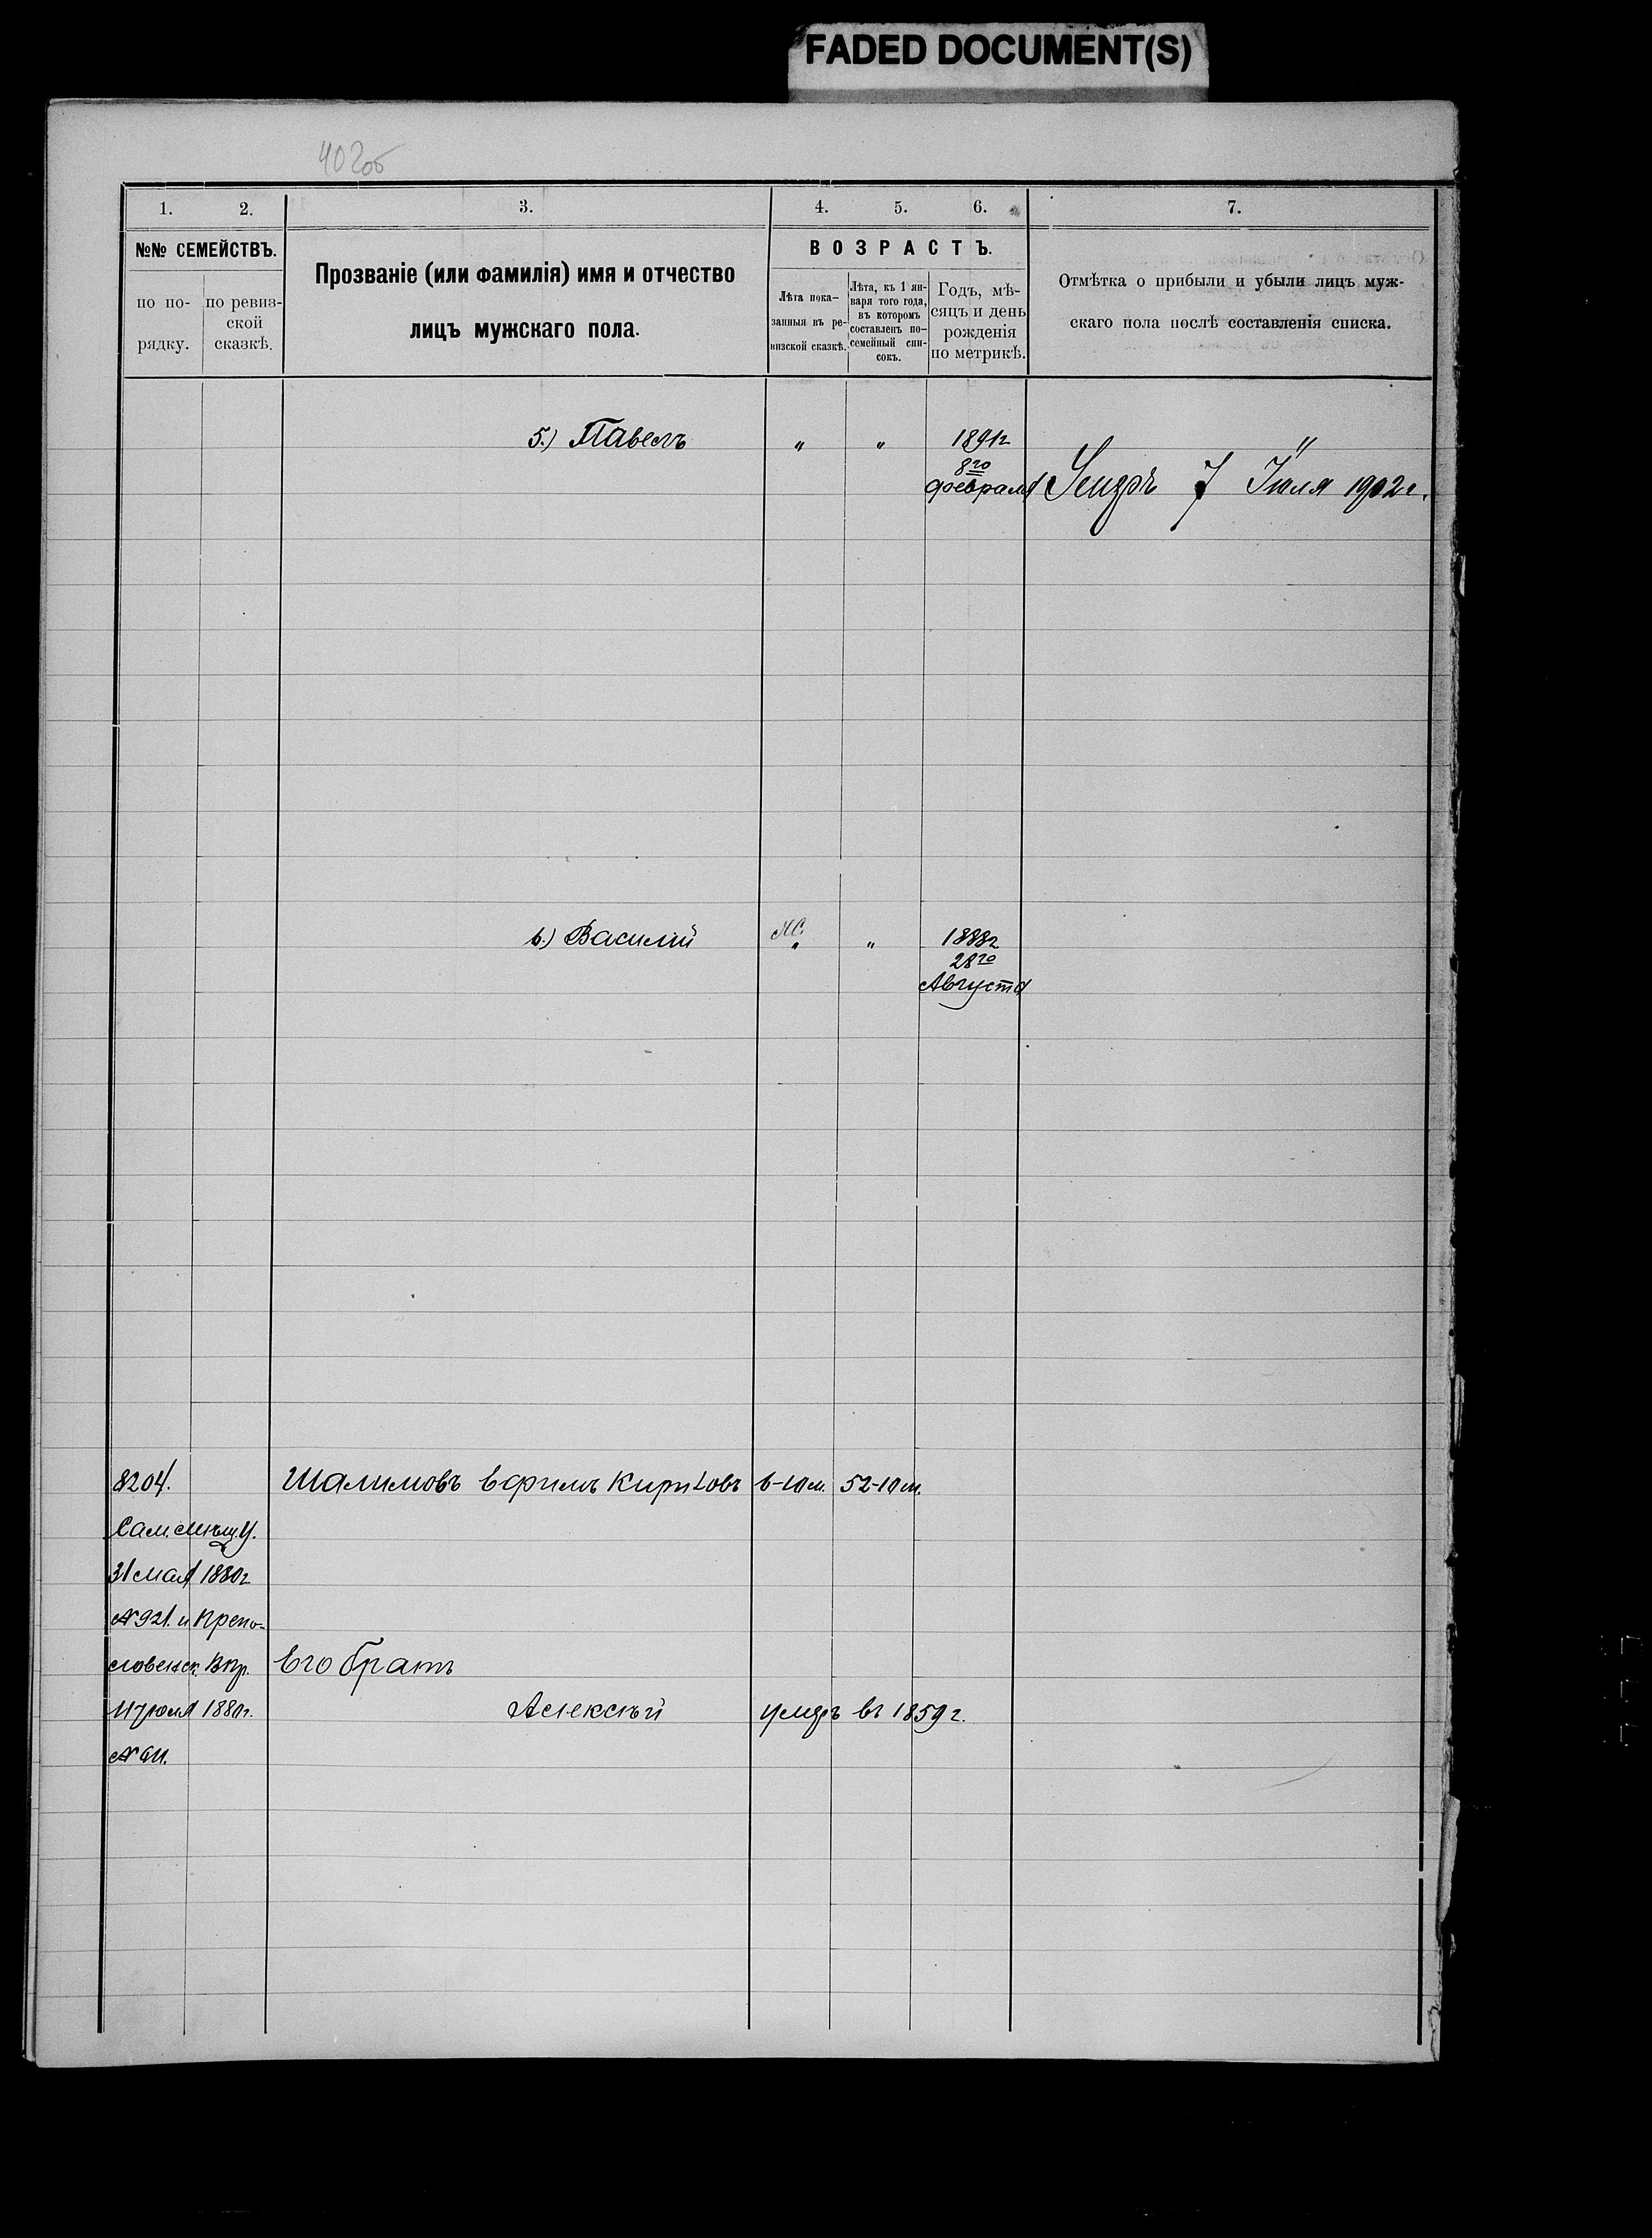 FADED DOCUMENT(S)
40об
1. 2. 3. 4. 5. 6. 7.
№№ СЕМЕЙСТВЪ.
по по-
рядку.
по ревиз-
ской
сказкѣ.
Прозваніе (или фамилія) имя и отчество
лицъ мужскаго пола.
ВОЗРАСТЪ.
Лѣта пока-
занныя въ ре-
визской сказкѣ.
Лѣта, къ 1 ян-
варя того года,
въ которомъ
составленъ по-
семейный спи-
сокъ.
Годъ, мѣ-
сяцъ и день
рожденія
по метрикѣ.
Отмѣтка о прибыли и убыли лицъ муж-
скаго пола послѣ составленія списка.
5.) Павелъ " " 1891г
8го
февраля
Умеръ 7 Іюля 1902г.
6.) Василій " " 1888г
28го
Августа
8204. Шалимовъ Ефимъ Кириловъ 6-10м. 52-10м.
Сам. мѣщ. У.
31 мая 1880г
№921. и
словенск. Впр. Его братъ
Іюля 1880г. Алексѣй умеръ въ 1859г.